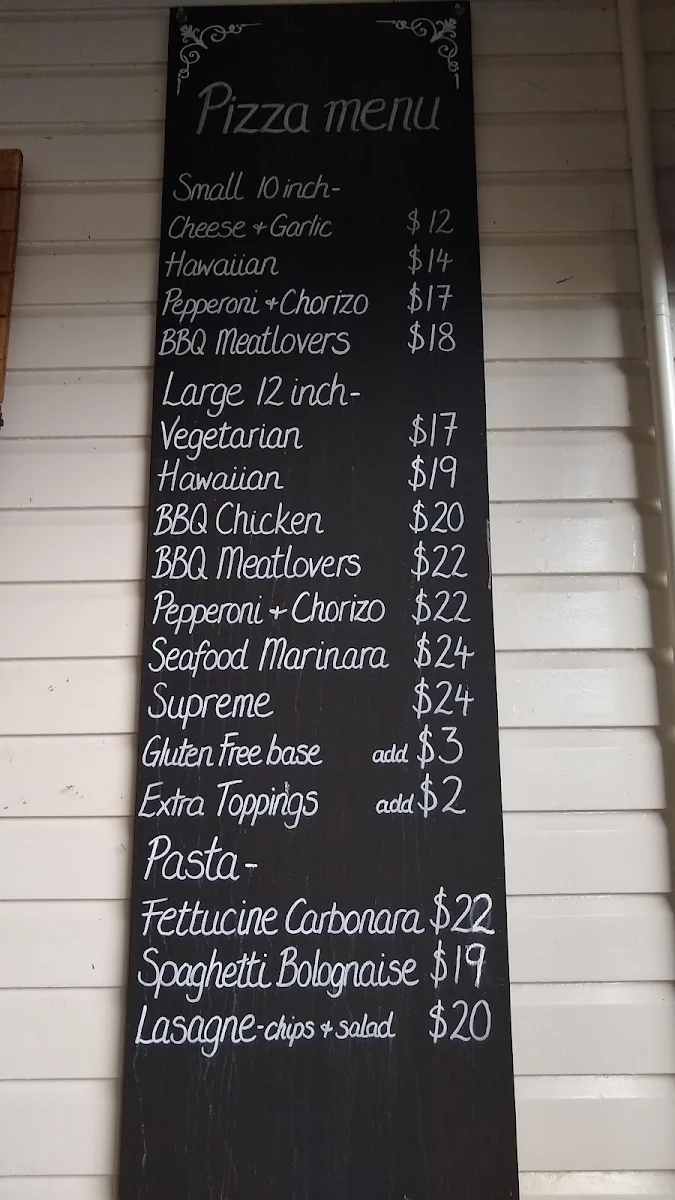 Pizza menu
Small 10 inch-
Cheese + Garlic $12
Hawaiian $14
Pepperoni + Chorizo $17
BBQ Meatlovers $18
Large 12 inch-
Vegetarian $17
Hawaiian $19
BBQ Chicken $20
BBQ Meatlovers $22
Pepperoni + Chorizo $22
Seafood Marinara $24
Supreme $24
Gluten Free base add $3
Extra Toppings add $2
Pasta-
Fettucine Carbonara $22
Spaghetti Bolognaise $19
Lasagne-chips + salad $20